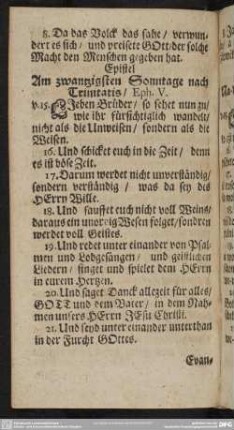 8. Da das Volck das sahe / verwun-
dert es sich / und preisete GOtt / der solche
Macht den Menschen gegeben hat.
Epistel
Am zwantzigsten Sonntage nach
Trinitatis / Eph. V.
v.15. LIeben Brüder / so sehet nun zu /
wie ihr fürsichtiglich wandelt /
nicht als die Unweisen / sondern als die
Weisen.
16. Und schicket euch in die Zeit / denn
es ist böse Zeit.
17. Darum werdet nicht unverständig /
sondern verständig / was da sey des
HErrn Wille.
18. Und sauffet euch nicht voll Weins /
daraus ein unordig Wesen folget / sondern
werdet voll Geistes.
19. Und redet unter einander von Psal-
men und Lobgesängen / und geistlichen
Liedern / singet und spielet dem HErrn
in eurem Hertzen.
20. Und saget Danck allezeit für alles /
GOTT und dem Vater / in dem Nah-
men unsers HErrn JEsu Christi.
21. Und seyd unter einander unterthan
in der Furcht GOttes.
Evan-